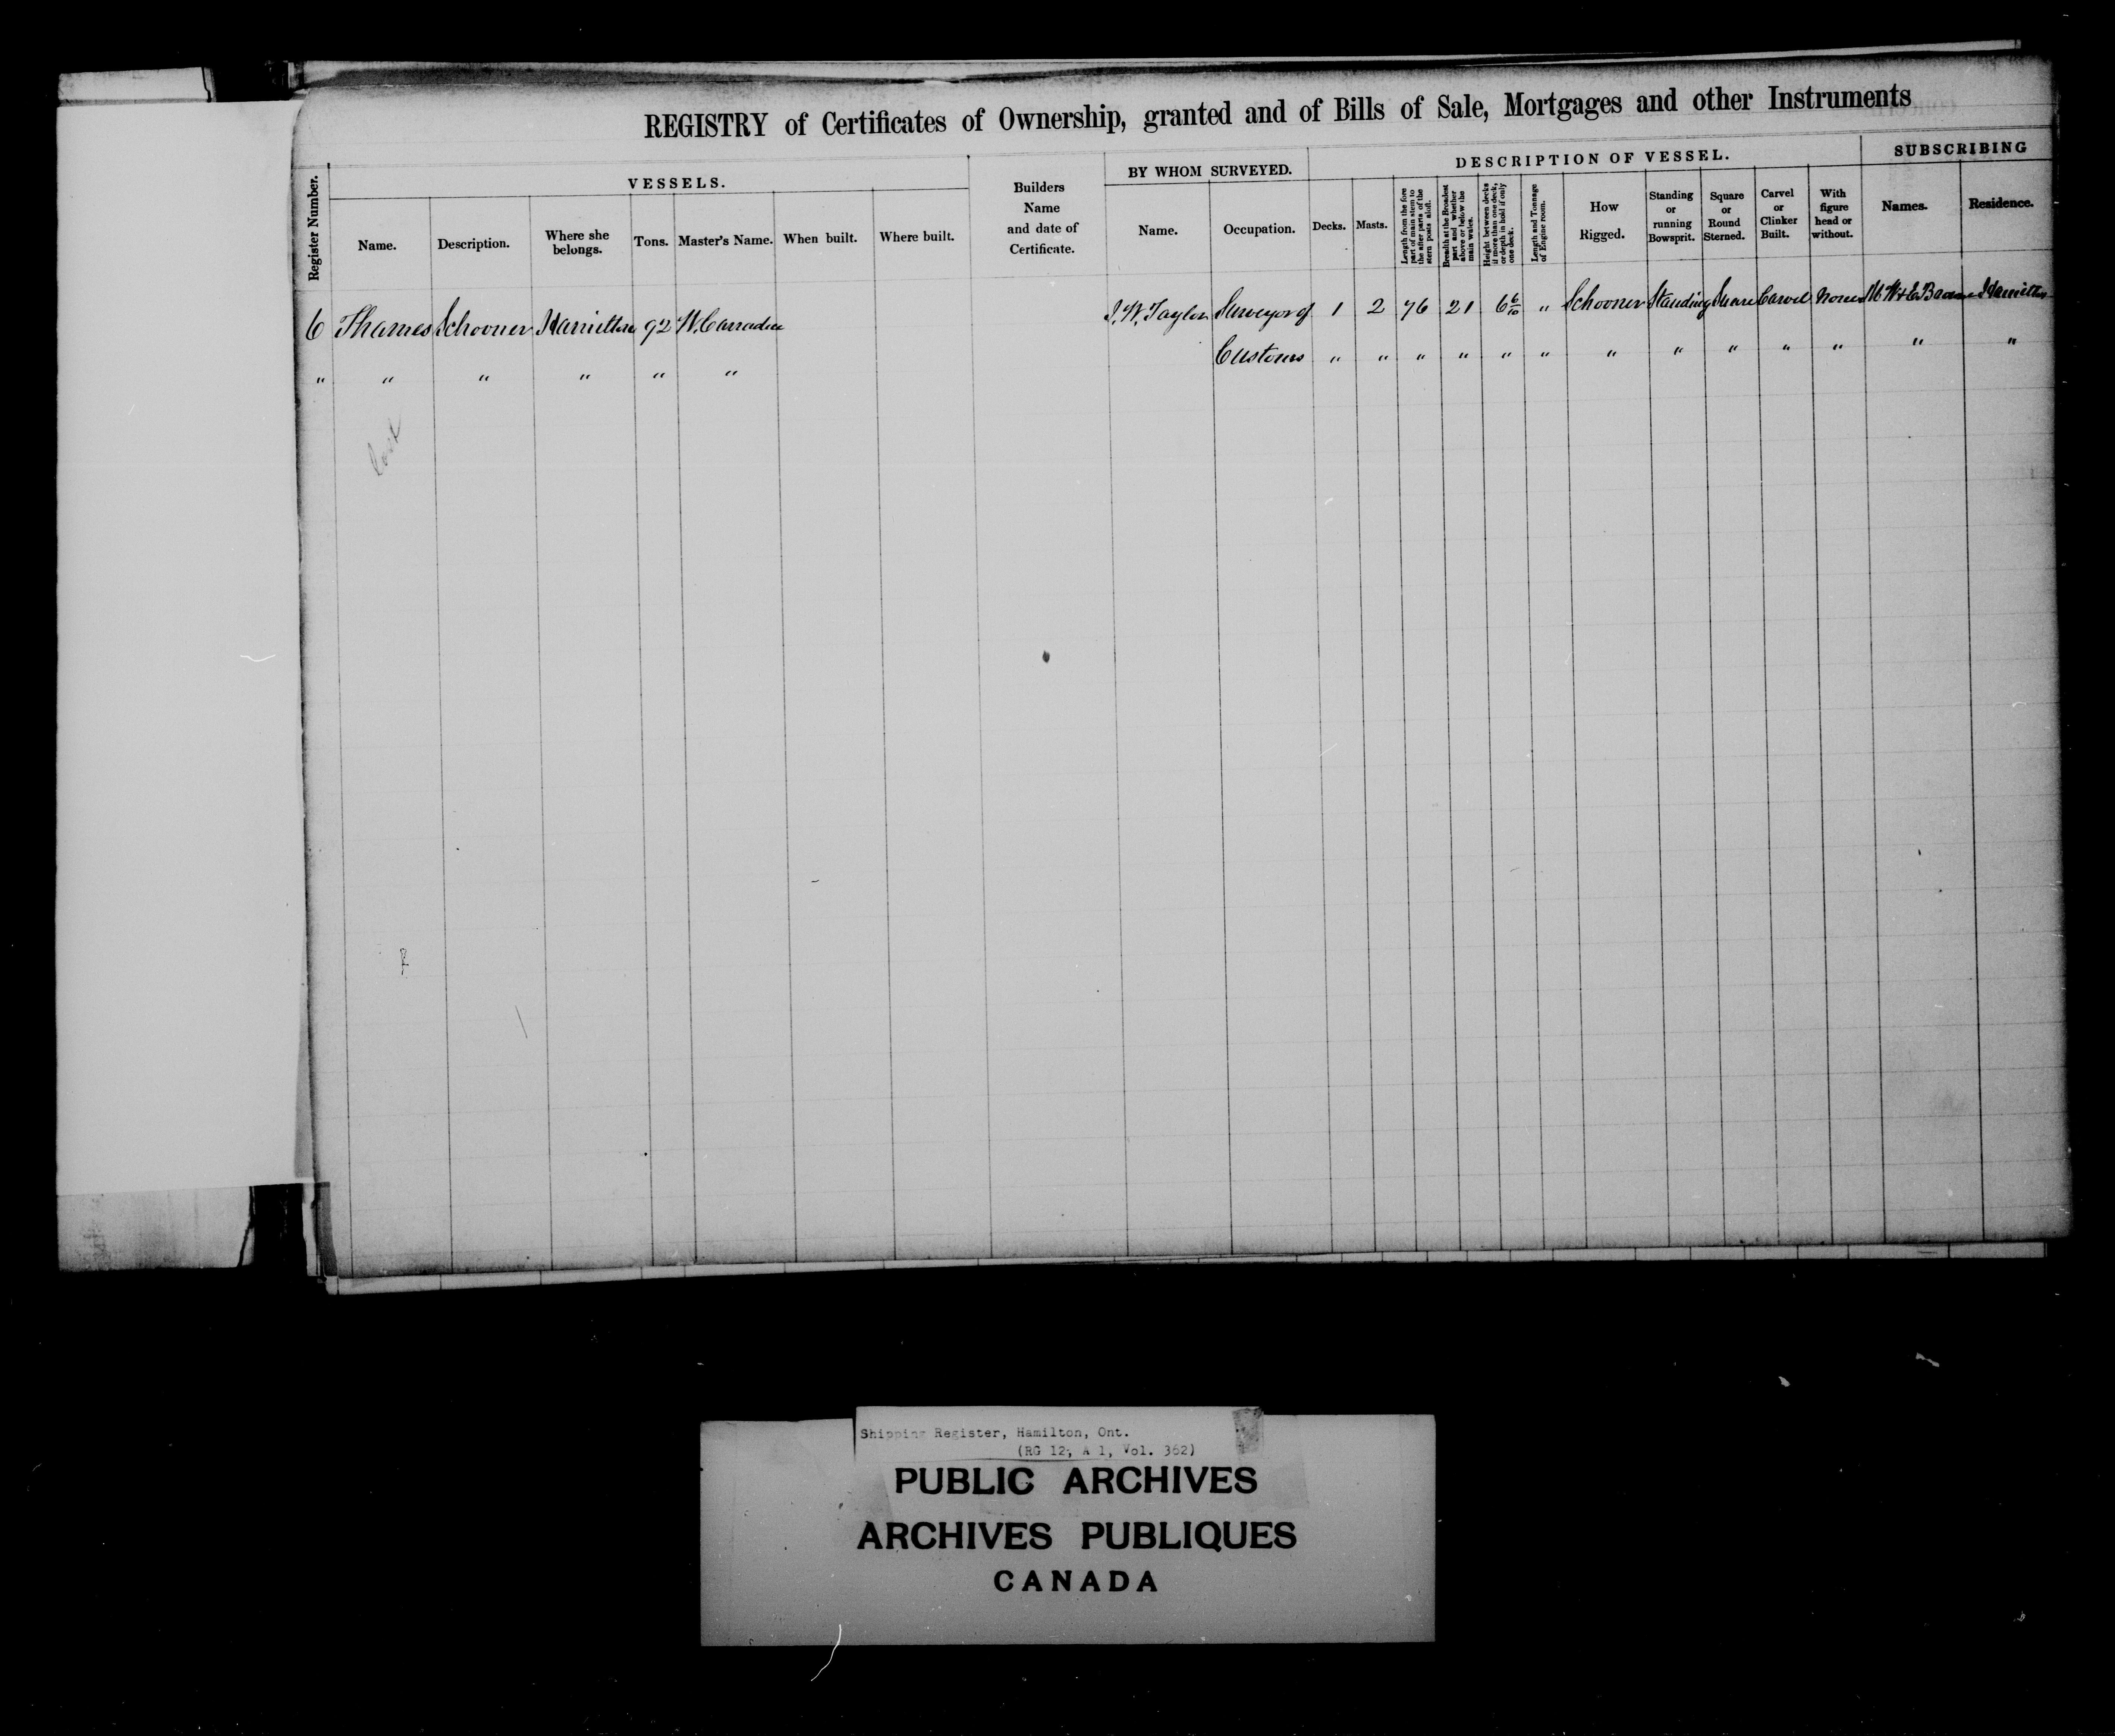 REGISTRY of Certificates of Ownership, granted and of Bills of Sale, Mortgages and other Instruments
Register Number.
VESSELS.
Name.
Description.
Where she
belongs.
Tons.
Master's Name.
When built.
Where built.
Builders
Name
and date of
Certificate.
BY WHOM SURVEYED.
Name.
Occupation.
DESCRIPTION OF VESSEL.
Decks.
Masts.
Length from the fore
part of main stem to
the after parts of the
stern posts aloft.
Breadth at the Broadest
part and whether
above or below the
main wales.
Height between decks
if more than one deck,
or depth in hold if only
one deck.
Length and Tonnage
of Engine room.
How
Rigged.
Standing
or
running
Bowsprit.
Square
or
Round
Sterned.
Carvel
or
Clinker
Built.
With
figure
head or
without.
SUBSCRIBING
Names.
Residence.
6 Thames Schooner Hamilton 92 W. J. W. Taylor Surveyor of 1 2 76 21 6 6/10 " Schooner Standing Square Carvel None Hamilton
Customs " " " " " " " " " " " " "
" " " " " "
Lost
Shipping Register, Hamilton, Ont.
(RG 12, A 1, Vol. 362)
PUBLIC ARCHIVES
ARCHIVES PUBLIQUES
CANADA